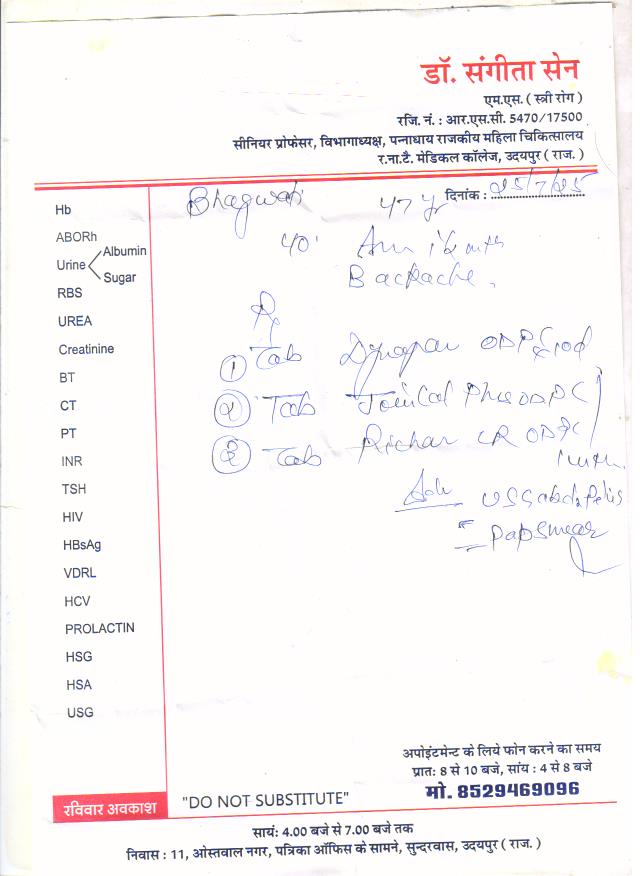 डॉ. संगीता सेन
एम.एस. ( स्त्री रोग )
रजि. नं. : आर.एस.सी. 5470/17500
सीनियर प्रोफेसर, विभागाध्यक्ष, पन्नाधाय राजकीय महिला चिकित्सालय
र.ना.टै. मेडिकल कॉलेज, उदयपुर ( राज. )
दिनांक : 25/7/25
Bhagwati 47 yr
Backache,
Hb
ABORh
Urine Albumin
Sugar
RBS
UREA
Creatinine
BT
CT
PT
INR
TSH
HIV
HBsAg
VDRL
HCV
PROLACTIN
HSG
HSA
USG
Rx
① Tab
② Tab
③ Tab CR
Adv
Papsmear
अपोइंटमेन्ट के लिये फोन करने का समय
प्रात: 8 से 10 बजे, सांय : 4 से 8 बजे
मो. 8529469096
रविवार अवकाश
"DO NOT SUBSTITUTE"
सायं: 4.00 बजे से 7.00 बजे तक
निवास : 11, ओस्तवाल नगर, पत्रिका ऑफिस के सामने, सुन्दरवास, उदयपुर ( राज. )